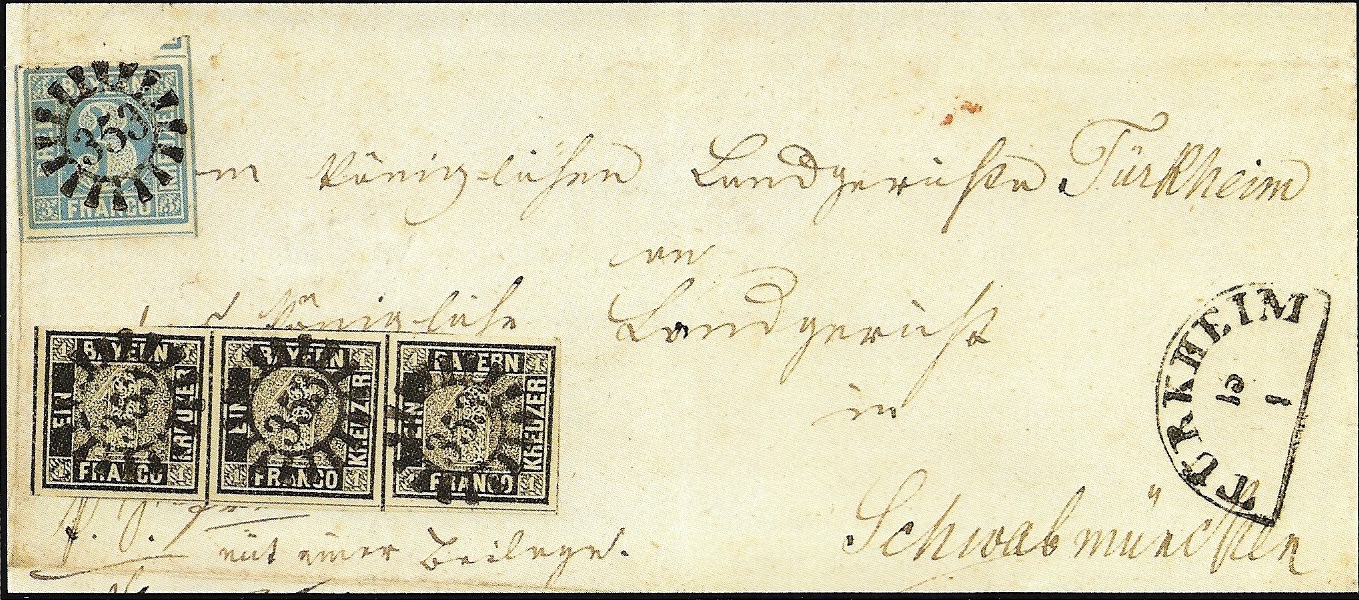 BAYERN
FRANCO
353
m Königlichen Landgerichte Türkheim
an
Königliche Landgericht
in
Schwabmünchen
BAYERN
EIN KREUZER
FRANCO
353
BAYERN
EIN KREUZER
FRANCO
353
BAYERN
EIN KREUZER
FRANCO
353
TÜRKHEIM
mit einer Beilage.